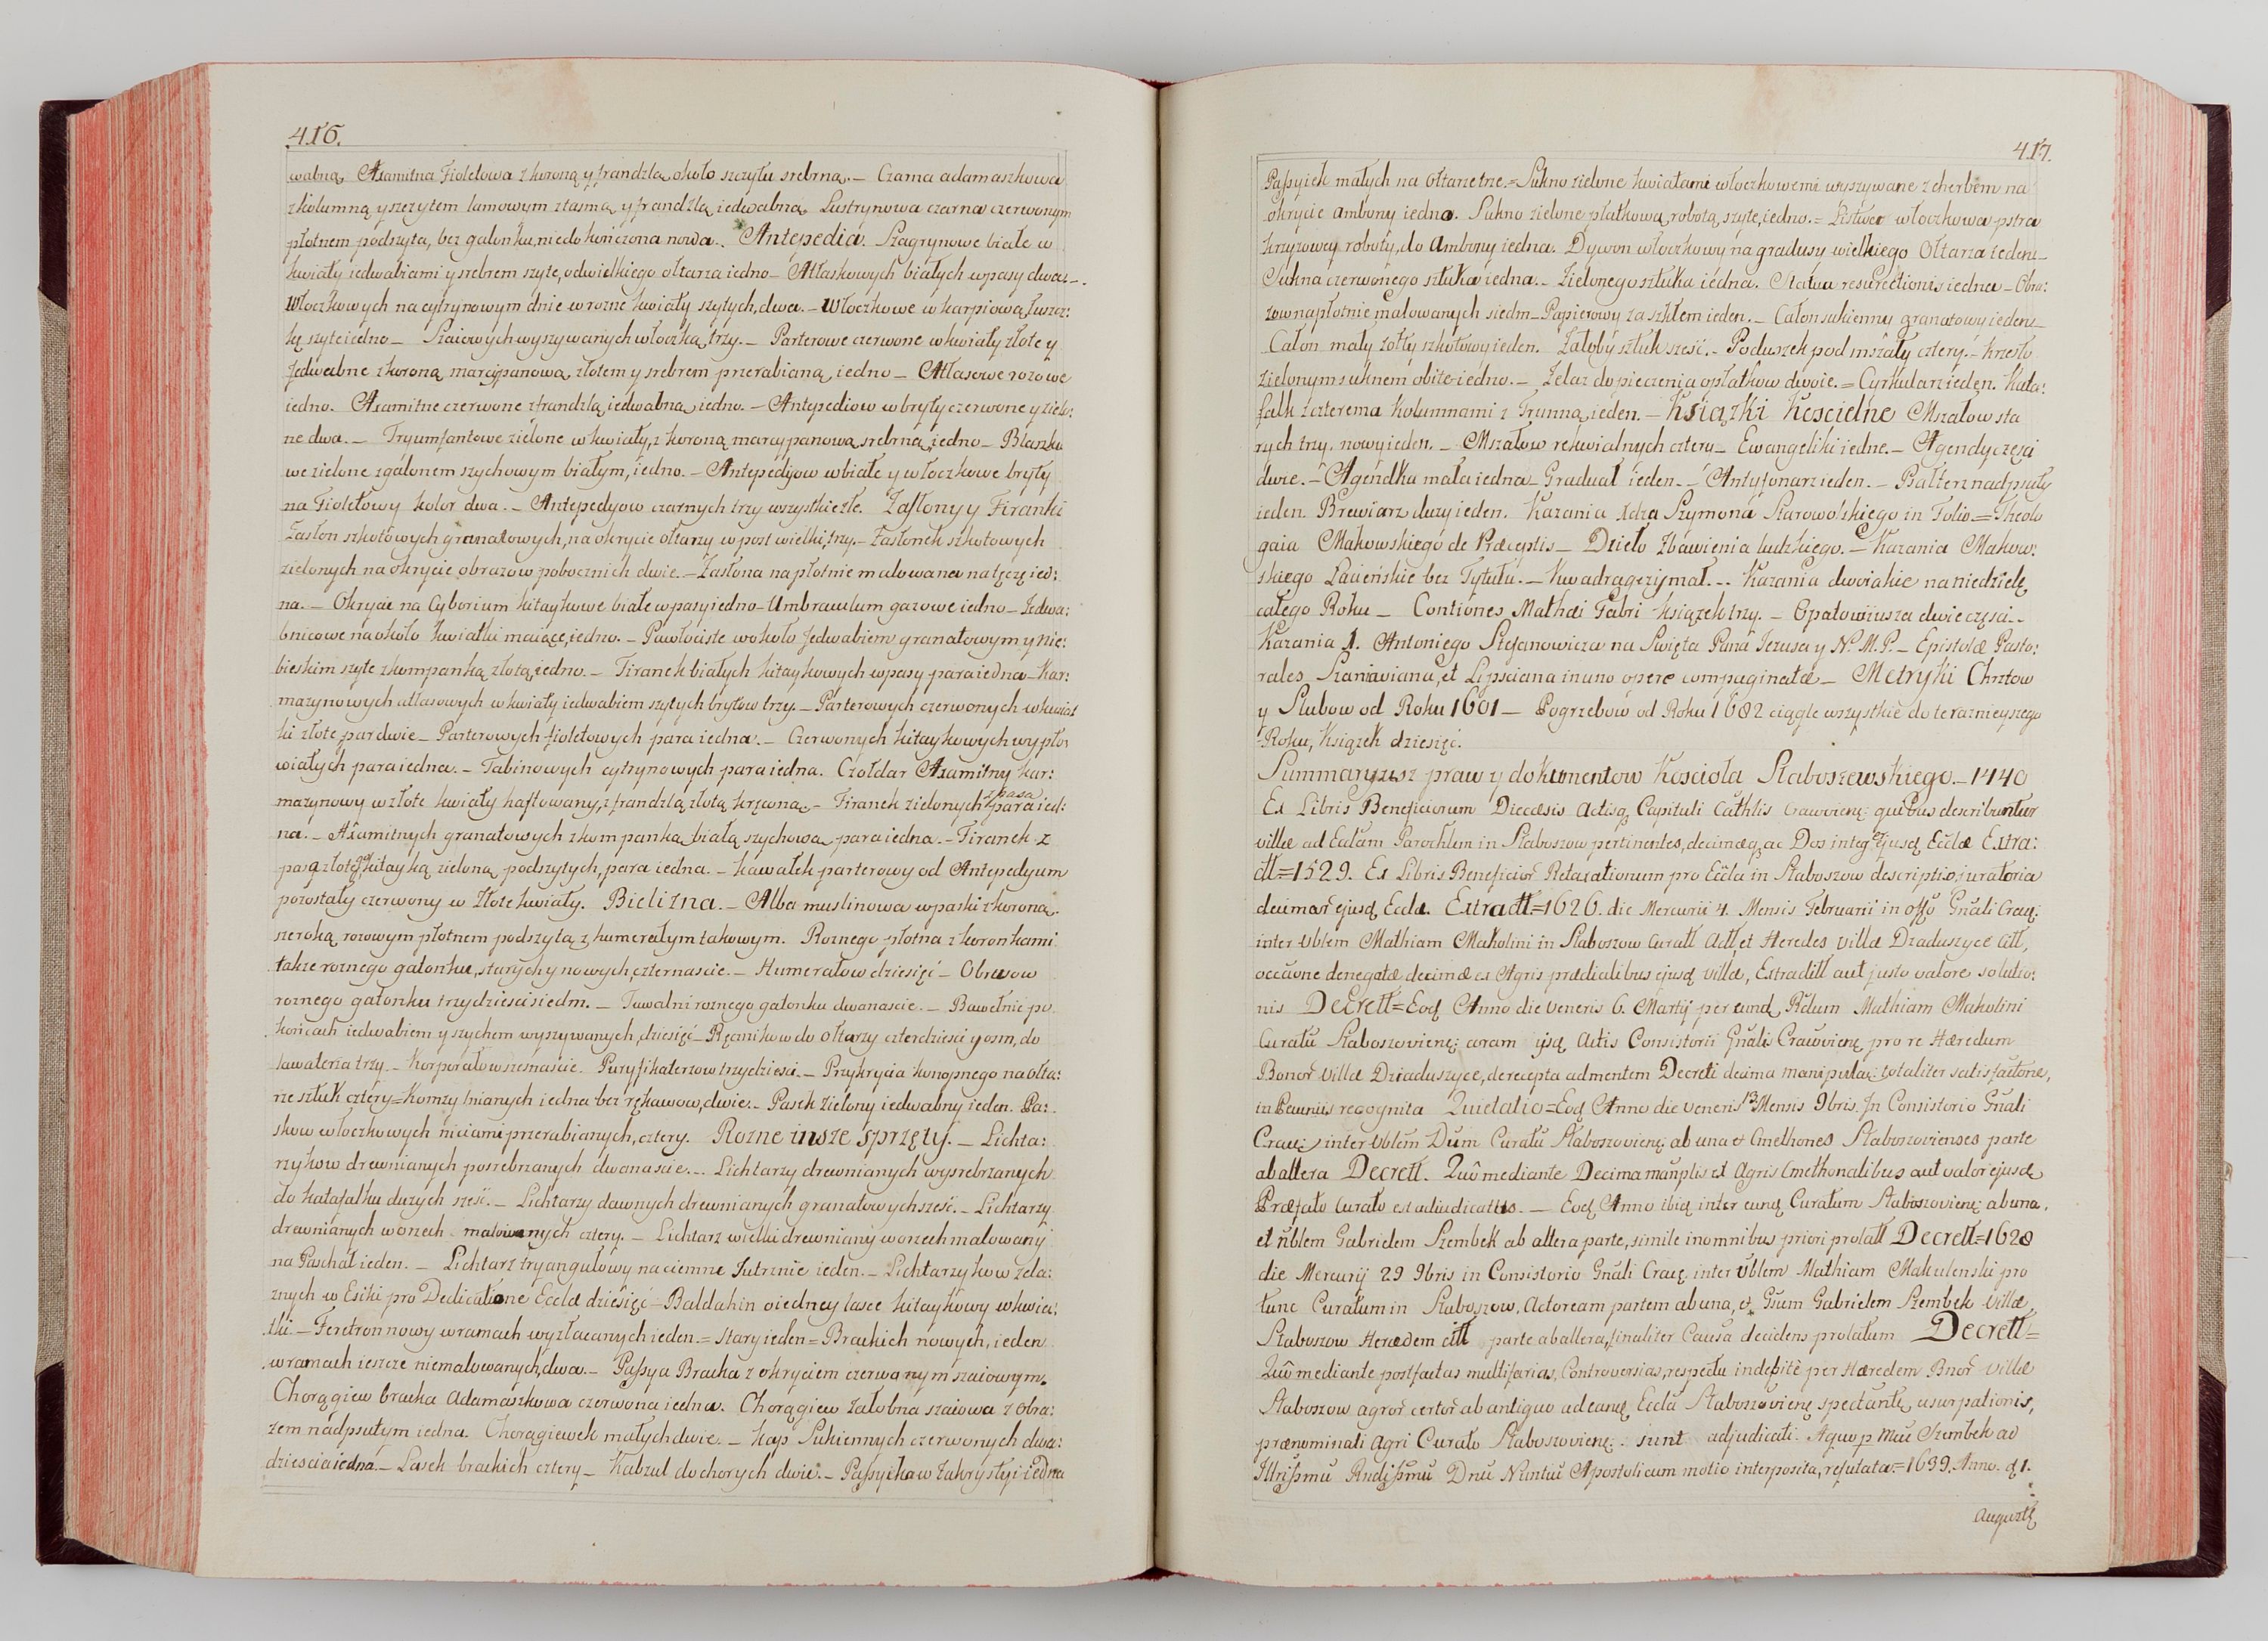 416.
wabną Axamitna Fioletowa z koroną y frandzlą około szczytu srebrną. – Czarna adamaszkowa
z kolumną y szczytem lamowym z tasmą y frandzlą iedwabną Lustrynowa czarna czerwonym
płotnem podszyta, bez galonku, niedokończona nowa. Antepedia. Szagrynowe białe w
kwiaty iedwabiami y srebrem szyte, od wielkiego ołtarza iedno – Atłaskowych białych w pasy dwa. –
Włoczkowych na cytrynowym dnie w rozne kwiaty szytych, dwa. – Włoczkowe w karpiową łuszcz:
kę szyte iedno – Szaiowych wyszywanych włoczką trzy. – Parterowe czerwone w kwiaty złote y
Jedwabne z koroną marcypanową, złotem y srebrem przerabianą iedno – Atłasowe rozowe
iedno. Axamitne czerwone z frandzlą iedwabną iedno. – Antepediow w bryty czerwone y zielo:
ne dwa. – Tryumfantowe zielone w kwiaty, z koroną marcypanową srebrną iedno – Blaszko
we zielone z galonem szychowym białym, iedno. – Antepedyow w białe y włoczkowe bryty
na Fioletowy kolor dwa. – Antepedyow czarnych trzy wszystkie złe. Zasłony y Firanki
Zasłon szkotowych granatowych, na okrycie ołtarzy w post wielki, trzy. – Zasłonek szkotowych
zielonych na okrycie obrazow pobocznich dwie. – Zasłona na płotnie malowana na tęczę ied:
na. – Okrycie na Cyborium kitaykowe białe w pasy iedno – Umbraculum gazowe iedno – Jedwa:
bnicowe naokoło kwiatki maiące, iedno. – Pawłociste wokoło Jedwabiem granatowym y nie:
bieskim szyte z kompanką złotą iedno. – Firanek białych kitaykowych w pasy para iedna – Kar:
mazynowych atlasowych w kwiaty iedwabiem szytych brytow trzy. – Parterowych czerwonych w kwiat
ki złote par dwie – Parterowych fioletowych para iedna. – Czerwonych kitaykowych wypło:
wiałych para iedna. – Tabinowych cytrynowych para iedna. Czołdar Axamitny kar:
mazynowy w złote kwiaty haftowany, z frandzlą złotą kręconą. – Firanek zielonych z pasą para ied:
na. – Axamitnych granatowych z kompanką białą szychową para iedna. – Firanek z
pasą złotą, kitayką zieloną podszytych, para iedna. – Kawałek parterowy od Antepedyum
pozostały czerwony w Złote kwiaty. Bielizna. – Alba muslinowa w paski z koroną
szeroką rozowym płotnem podszytą, z humerałym takowym. Roznego płotna z koronkami
takze roznego gatonku, starych y nowych, czternascie. – Humerałow dziesięć – Obrusow
roznego gatonku trzydziesci siedm. – Tuwalni roznego gatonku dwanascie. – Bawełnic po
końcach iedwabiem y szychem wyszywanych, dziesięć – Ręcznikow do ołtarzy czterdziesci y osm, do
lawaterza trzy. – Korporałow szesnascie. Puryfikaterzow trzydziesci. – Przykrycia konopnego na ołta:
rze sztuk cztery = Komzy lnianych iedna bez rękawow, dwie. – Pasek Zielony iedwabny ieden. Pa:
skow włoczkowych niciami przerabianych, cztery. Rozne insze sprzęty. – Lichta:
rzykow drewnianych posrebrzanych dwanascie. – Lichtarzy drewnianych wysrebrzanych
do katafalku duzych sześć. – Lichtarzy dawnych drewnianych granatowych sześć. – Lichtarzy
drewnianych w orzech malowanych cztery. – Lichtarz wielki drewniany w orzech malowany
na Paschał ieden. – Lichtarz tryangułowy na ciemne Jutrznie ieden. – Lichtarzykow zela:
znych w Esiki pro Dedicatione Ecclæ dziesięć – Baldahin o iedney lasce kitaykowy w kwia:
tki. – Feretron nowy w ramach wyzłacanych ieden. = stary ieden = Brackich nowych, ieden
w ramach ieszcze niemalowanych, dwa. – Paſsya Bracka z okryciem czerwonym szaiowym.
Chorągiew bracka Adamaszkowa czerwona iedna. Chorągiew żałobna szaiowa z Obra:
zem nadpsutym iedna. Chorągiewek małych dwie. – Kap Sukiennych czerwonych dwa:
dziescia iedna. – Lasek brackich cztery – Kabzul do chorych dwie. – Paſsyika w Zakrystyi iedna
417.
Paſsyiek małych na ołtarze trze. = Sukno zielone kwiatami włoczkowemi wyszywane z cherbem na
okrycie ambony iedno. Sukno zielone płatkową robotą, szyte, iedno. = Listwa włoczkowa pstra
krzyzowey roboty, do Ambony iedna. Dywon włoczkowy na gradusy wielkiego Ołtarza ieden –
Sukna czerwonego sztuka iedna. – Zielonego sztuka iedna. Statua resurectionis iedna – Obra:
zow na płotnie malowanych siedm – Papierowy za szkłem ieden. – Całon sukienny granatowy ieden –
Całon mały żołty szkotowy ieden. Żałoby sztuk sześć. – Poduszek pod mszały cztery. – Krzesło
zielonym suknem obite iedno. – Żelaz do pieczenia opłatkow dwoie. = Cyrkularz ieden. Kata:
falk z czterema Kolumnami z Trunną, ieden. – Książki Kościelne Mszałow sta
rych trzy, nowy ieden. – Mszałow rekwialnych cztery – Ewangeliki iedne. – Agendy częsci
dwie. – Agendka mała iedna – Graduał ieden. – Antyfonarz ieden. – Psałterz nadpsuty
ieden. Brewiarz duzy ieden. Kazania Xdza Szymona Starowolskiego in Folio. = Theolo
gia Makowskiego de Præceptis – Dzieło Zbawienia ludzkiego. – Kazania Makow:
skiego Łacieńskie bez Tytułu. – Kwadragezymał. – Kazania dwoiakie na niedziele
całego Roku – Contiones Mathæi Fabri książek trzy. – Opatowiusza dwie częsci. –
Kazania X. Antoniego Stefanowicza na Swięta Pana Jezusa y N. M. P. – Epistolæ Pasto:
rales Szaniaviana, et Lipsciana in uno opere compaginatæ – Metryki Chrztow
y Slubow od Roku 1601 – Pogrzebow od Roku 1682 ciągle wszystkie do terazniejszego
Roku, Książek dziesięć.
Summaryusz praw y dokumentow Koscioła Slaboszewskiego. – 1440
Ex Libris Beneficiorum Dioecesis Actisq Capituli Cathlis Cracovienę quibus describuntur
villæ ad Eccłam Parochlem in Slaboszow pertinentes, decimæq ac Dos integra ejusq Ecclæ Extra:
dtt = 1529. Ex Libris Beneficior Retaxationum pro Eccla in Slaboszow descriptio, juratoria
decimar ejusq Eccłæ. Extradtt = 1626. die Mercurii 4. Mensis Februarii in offo Gnali Cracę
inter Vblem Mathiam Makolini in Slaboszow Curatt Actt et Heredes Villæ Dzaduszyce Citt,
occione denegatæ decimæ ex Agris prædialibus ejusq villæ, Extraditt aut justo valore solutio:
nis Decrett = Eoq Anno die Veneris 6. Martij per eund Rdum Mathiam Makolini
Curatū Slaboszovienę coram ijsq Actis Consistorii Gnalis Cracovienę pro re Hæredum
Bonor Villæ Dziaduszyce, de recepta ad mentem Decreti decima manipulaę totaliter satisfactone,
in Pecuniis recognita Quietatio = Eoq Anno die Veneris 13 Mensis 9bris. In Consistorio Gnali
Cracę inter Vblem Dum Curatū Slaboszovienę ab una et Cmethones Slaboszovienses parte
ab altera Decrett. Quō mediante Decima manplis ex Agris Cmethonalibus aut valor ejusq
Præfato Curato est adiudicatus. – Eoq Anno ibiq inter eunq Curatum Slaboszovienę ab una,
et nblem Gabrielem Szembek ab altera parte, simile in omnibus priori prolatt Decrett = 1628
die Mercurij 29 9bris in Consistorio Gnali Cracę inter Vblem Mathiam Makulenski pro
tunc Curatum in Slaboszow, Actoream partem ab una, et Gsum Gabrielem Szembek Villæ
Slaboszow Heredem citt parte ab altera, finaliter Causa decidens prolatum Decrett =
Quō mediante post factas multifarias, Controversias, respectu indebitè per Hæredem Bnor Villæ
Slaboszow agror certor ab antiquo ad eanq Ecclā Slaboszovienę spectantę usurpationis,
prænominati Agri Curato Slaboszovienę: sunt adjudicati. A quo p Mcū Szembek ad
Illriſsmū Rndiſsmū Dnū Nuntiū Apostolicum motio interposita, refutata = 1639. Anno. q 1.
Augustę